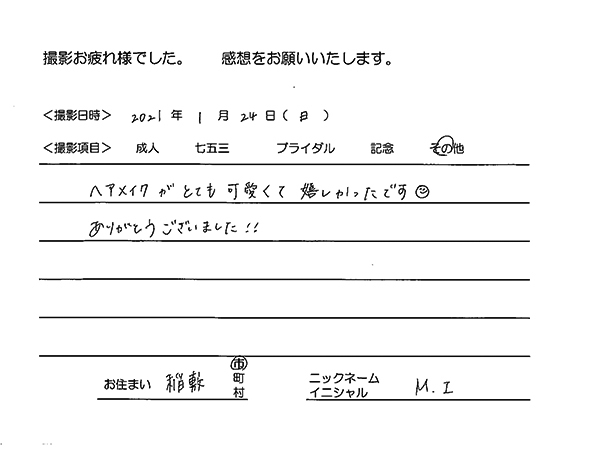 撮影お疲れ様でした。 感想をお願いいたします。
＜撮影日時＞ 2021 年 1 月 24 日 ( 日 )
＜撮影項目＞ 成人 七五三 ブライダル 記念 その他
ヘアメイクが とても 可愛くて 嬉しかったです☺
ありがとうございました!!
お住まい 稲敷 市 町 村 ニックネーム イニシャル M. I